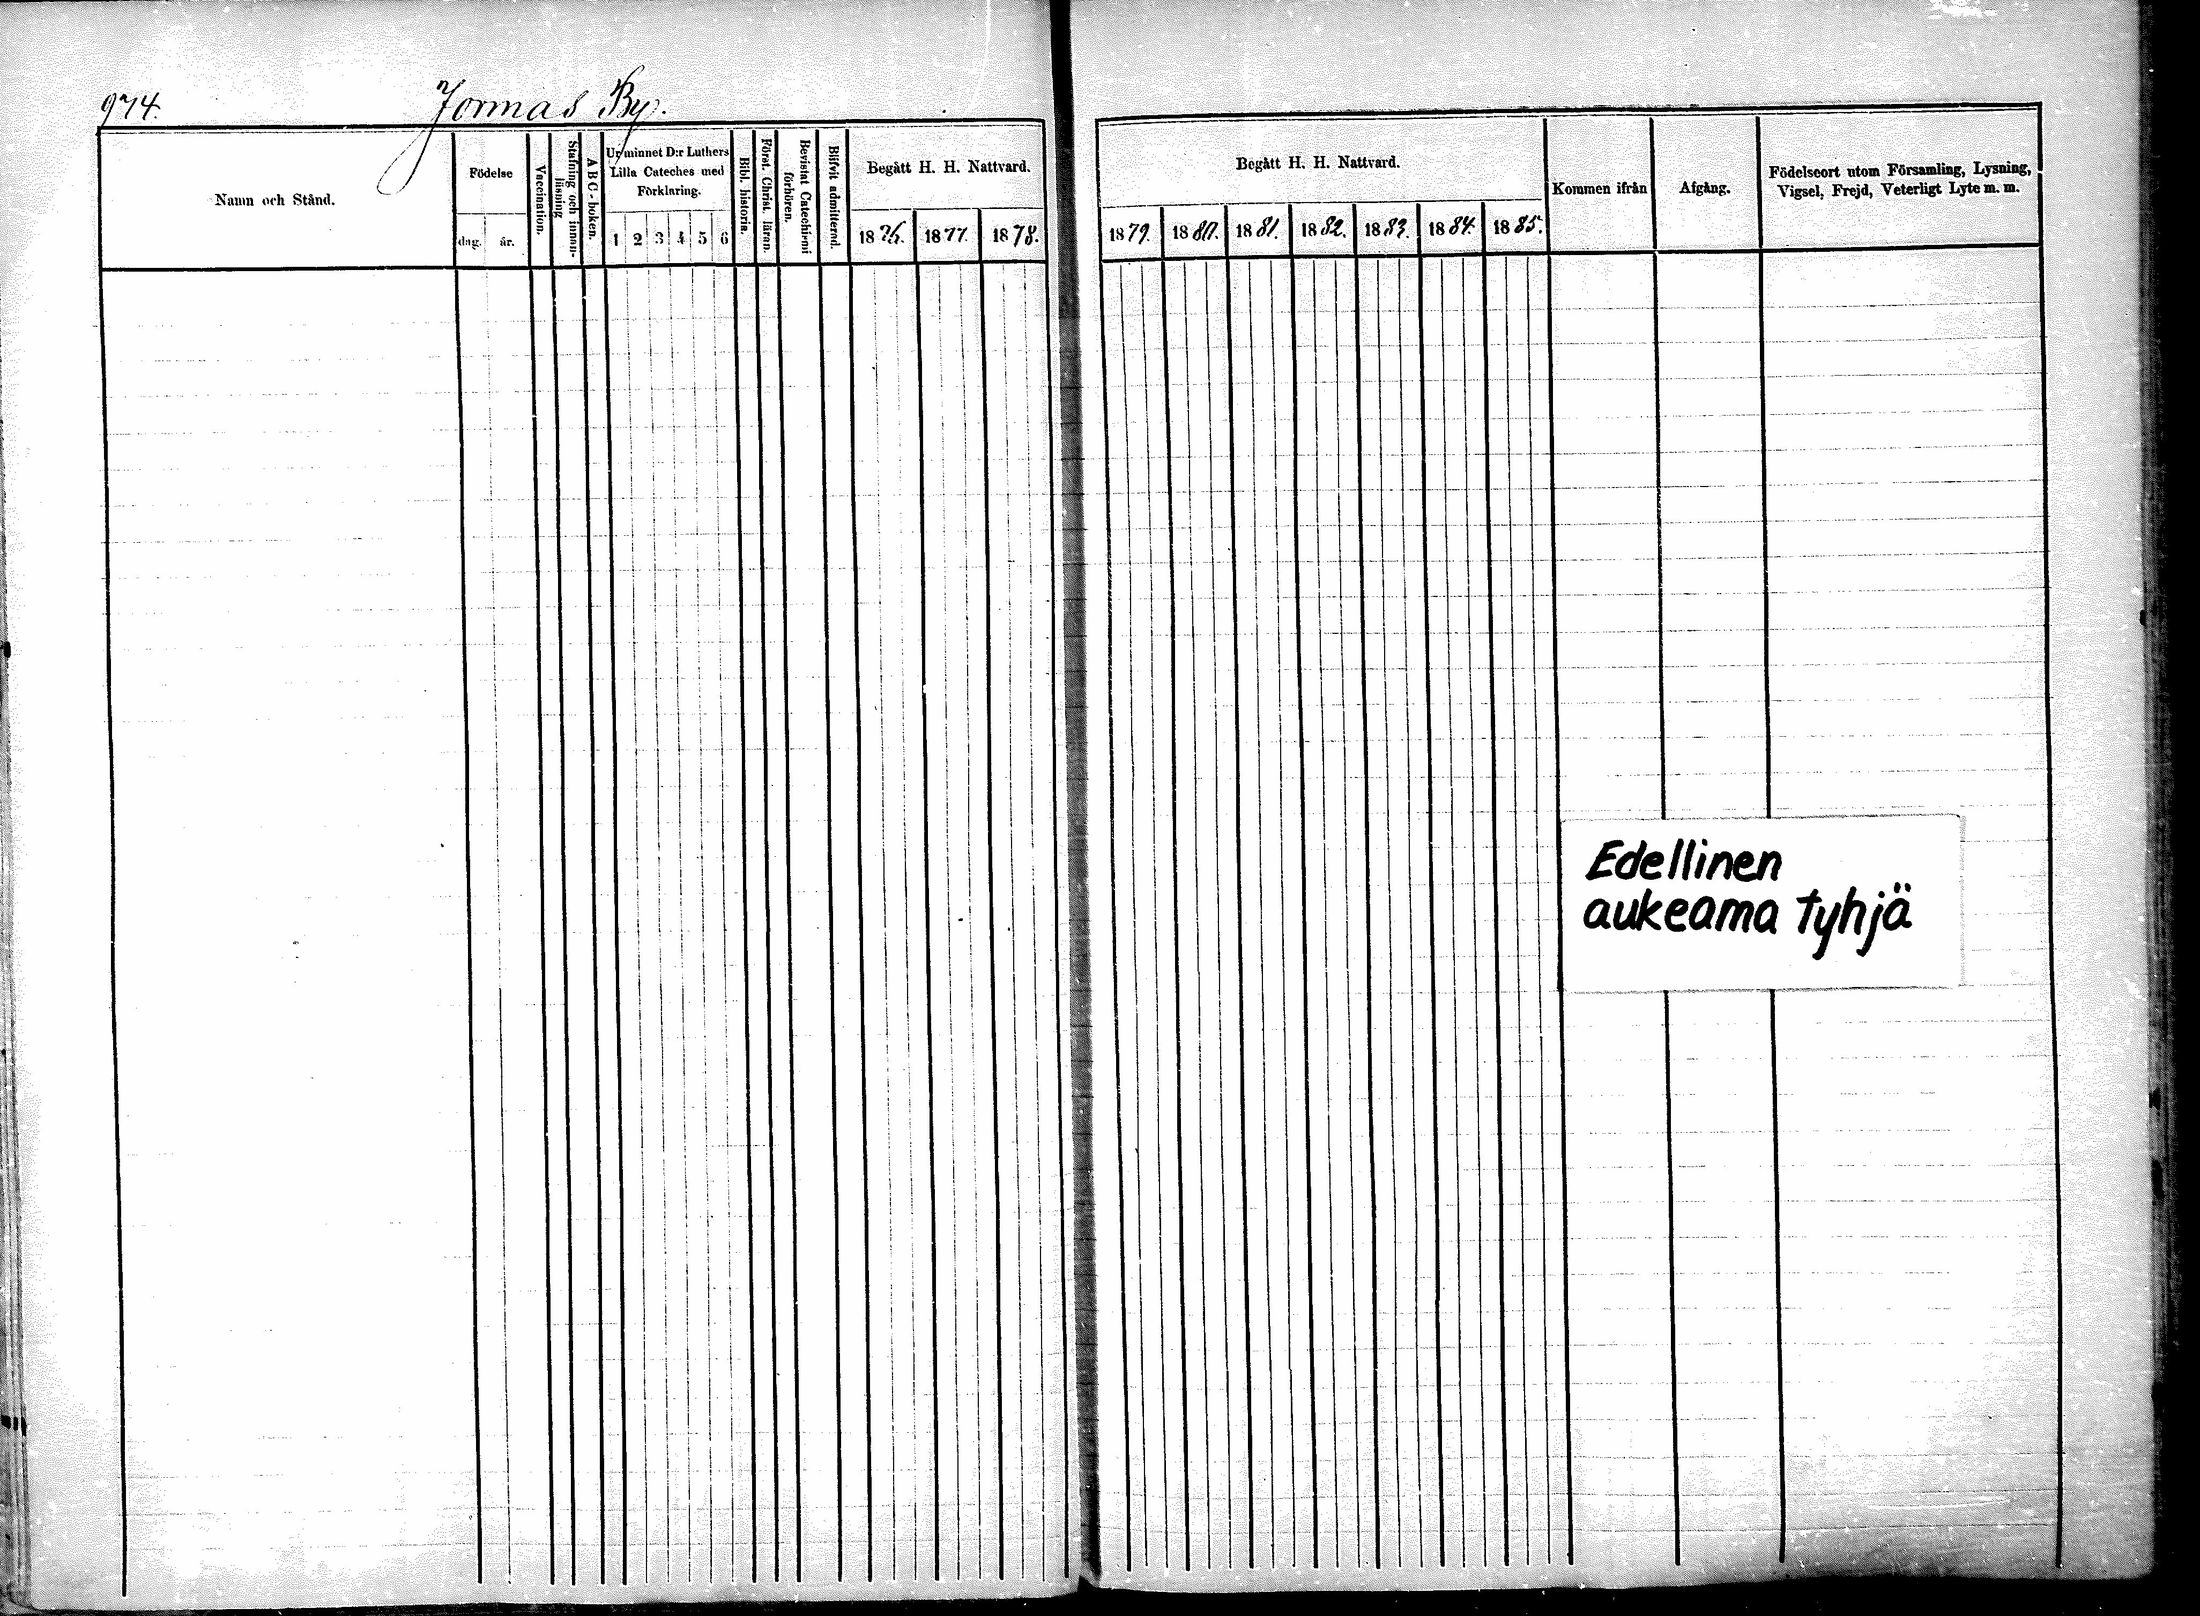 974.
Jormas By.
Namn och Stånd.
Födelse
dag.
år.
Vaccination.
Stafning och innan-
läsning
ABC-boken.
Ur minnet D:r Luthers
Lilla Cateches med
Förklaring.
1 2 3 4 5 6
Bibl. historia.
Först. Christ. läran.
Bevistat Catechi-mi
förhören.
Blifvit admitterad.
Begått H. H. Nattvard.
1876. 1877. 1878.
Begått H. H. Nattvard.
1879. 1880. 1881. 1882. 1883. 1884. 1885.
Kommen ifrån
Afgång.
Födelseort utom Församling, Lysning,
Vigsel, Frejd, Veterligt Lyte m. m.
Edellinen
aukeama tyhjä